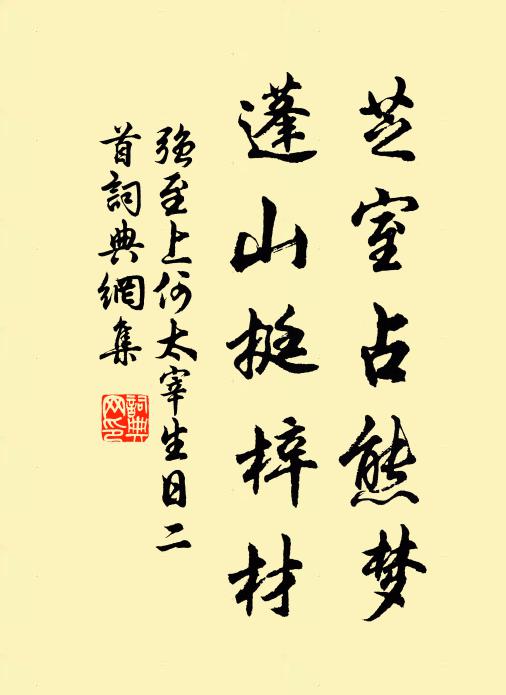 芝室占熊梦
蓬山挺梓材
強至上何太宰生日二
首詞典網集
詞典
网印